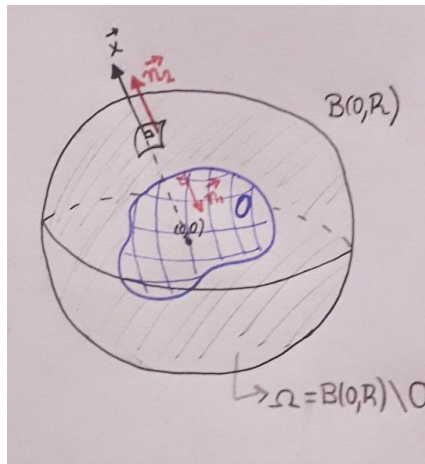 x⃗
n⃗₂
B(0,R)
n⃗₁
O
(0,0)
Ω = B(0,R) \ O